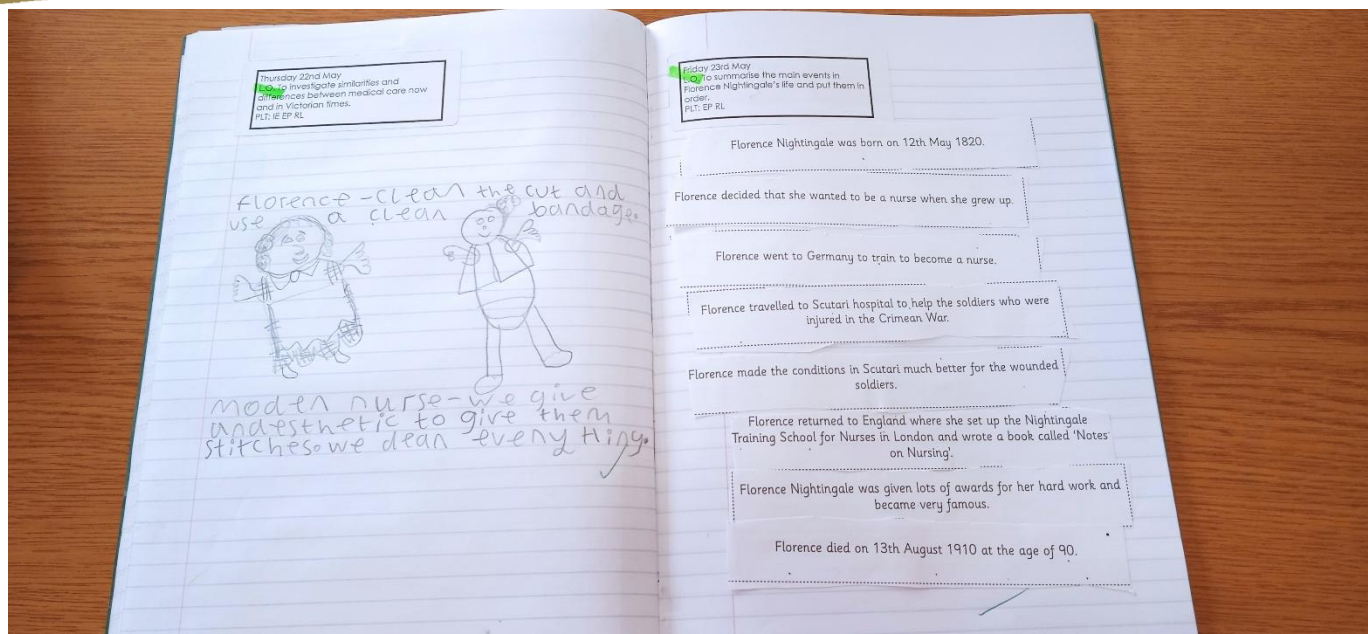 Thursday 22nd May
L.O. To investigate similarities and
differences between medical care now
and in Victorian times.
PLT: IE EP RL
Florence - clean the cut and
use a clean bandage.
Moden nurse - we give
anaesthetic to give them
stitches. we clean eveny thing.
Friday 23rd May
L.O. To summarise the main events in
Florence Nightingale's life and put them in
order.
PLT: EP RL
Florence Nightingale was born on 12th May 1820.
Florence decided that she wanted to be a nurse when she grew up.
Florence went to Germany to train to become a nurse.
Florence travelled to Scutari hospital to help the soldiers who were
injured in the Crimean War.
Florence made the conditions in Scutari much better for the wounded
soldiers.
Florence returned to England where she set up the Nightingale
Training School for Nurses in London and wrote a book called 'Notes
on Nursing'.
Florence Nightingale was given lots of awards for her hard work and
became very famous.
Florence died on 13th August 1910 at the age of 90.